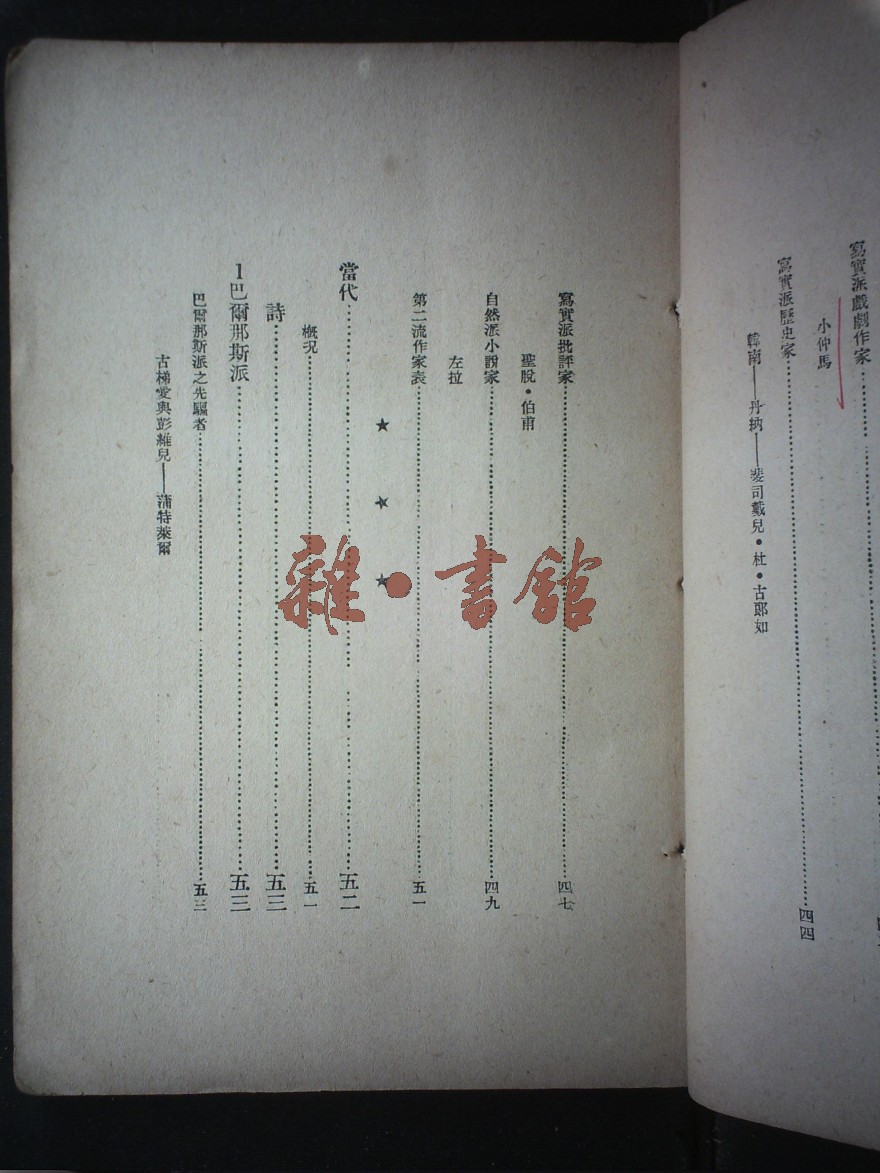 寫實派戲劇作家
小仲馬
寫實派歷史家……四四
韓南——丹納——斐司戴兒・杜・古郎如
寫實派批評家……四七
聖脫・伯甫
自然派小說家……四九
左拉
第二流作家表……五一
★ ★ ★
當代……五二
概况……五一
詩……五三
1巴爾那斯派……五三
巴爾那斯派之先驅者……五三
古梯愛與彭維兒——蒲特萊爾
雜・書館